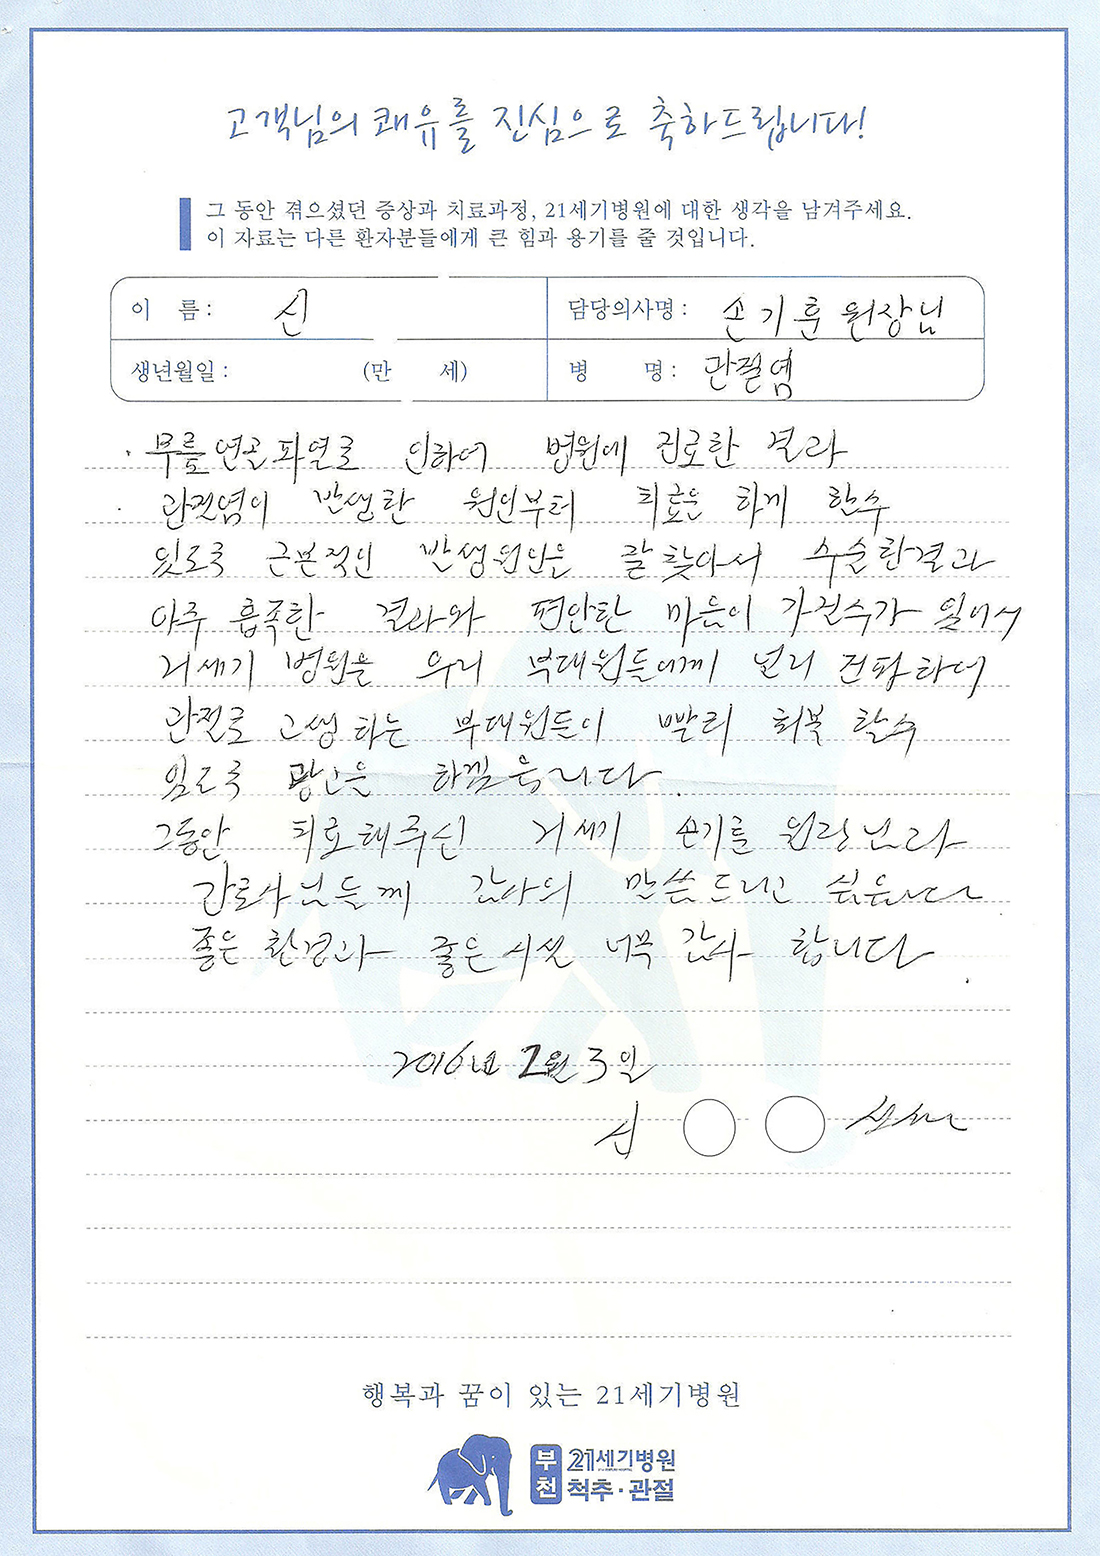 고객님의 쾌유를 진심으로 축하드립니다!
그 동안 겪으셨던 증상과 치료과정, 21세기병원에 대한 생각을 남겨주세요.
이 자료는 다른 환자분들에게 큰 힘과 용기를 줄 것입니다.
이 름 : 신
담당의사명 : 손기훈 원장님
생년월일 : (만 세)
병 명 : 관절염
· 무릎연골파열로 인하여 병원에 진료한 결과
· 관절염이 발생한 원인부터 치료을 하게 할수
있도록 근본적인 발생원인을 잘찾아서 수술한결과
아주 흡족한 결과와 편안한 마음이 가질수가 있어서
21세기 병원을 우리 부대원들에게 널리 전파하여
관절로 고생하는 부대원들이 빨리 회복 할수
있도록 광고을 하겠읍니다.
그동안 치료해주신 21세기 손기훈 원장님과
간호사님들께 감사의 말씀드리고 싶읍니다
좋은 환경과 좋은시설 너무 감사 합니다
2016년 2월 3일
신
행복과 꿈이 있는 21세기병원
부천 21세기병원
척추·관절